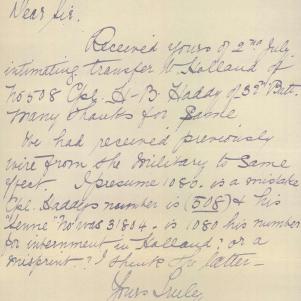 Dear Sir.
Received yours of 2nd July
intimating transfer to Holland of
No 508 Cpl. H. B. Haddy of 3rd Batt.
Many thanks for same
We had received previously
wire from the Military to same
effect. I presume 1080. is a mistake
Cpl. Haddy's number is (508) & his
"Senne" No was 31804. is 1080 his number
for internment in Holland? or a
misprint? I think the latter—
Yours Truly